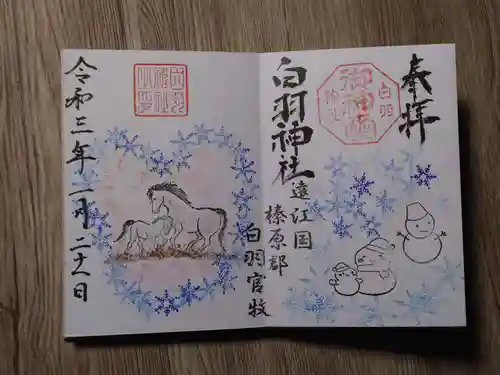 奉拝
白羽
神社
白羽神社
遠江国
榛原郡
白羽官牧
令和三年一月二十一日